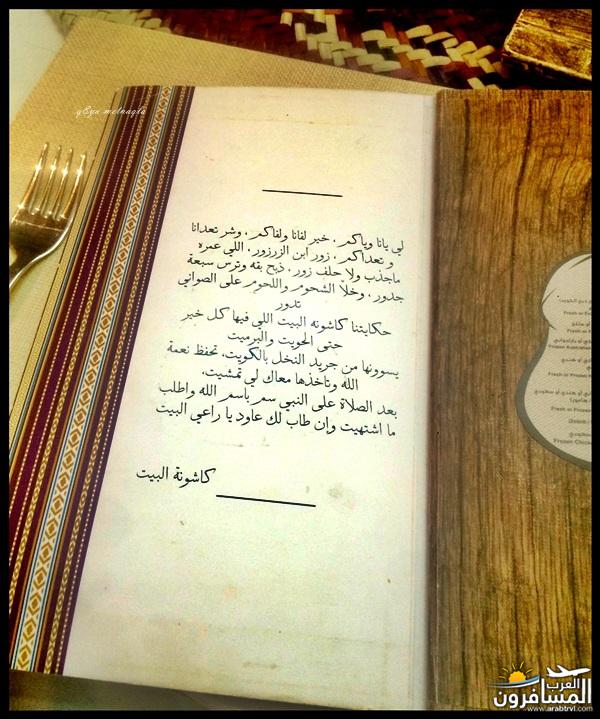 gEya melnagta
لي يانا وياكم ، خير لفانا ولفاكم ، وشر تعدانا
و تعداكم ، زور ابن الزرزور ، اللي عمره
ماجذب ولا حلف زور ، ذبح بقه وترس سبعة
جدور ، وخلا الشحوم واللحوم على الصواني
تدور
حكايتنا كاشونه البيت اللي فيها كل خير
حتى الحويت والبرميت
يسوونها من جريد النخل بالكويت، تحفظ نعمة
الله وتاخذها معاك لي تمشيت،
بعد الصلاة على النبي سم باسم الله واطلب
ما اشتهيت وإن طاب لك عاود يا راعي البيت
كاشونة البيت
Fresh or
Frozen Australian
Fresh or Frozen
Fresh or Frozen
Frozen Chicken
العرب
المسافرون
www.arabtrvl.com